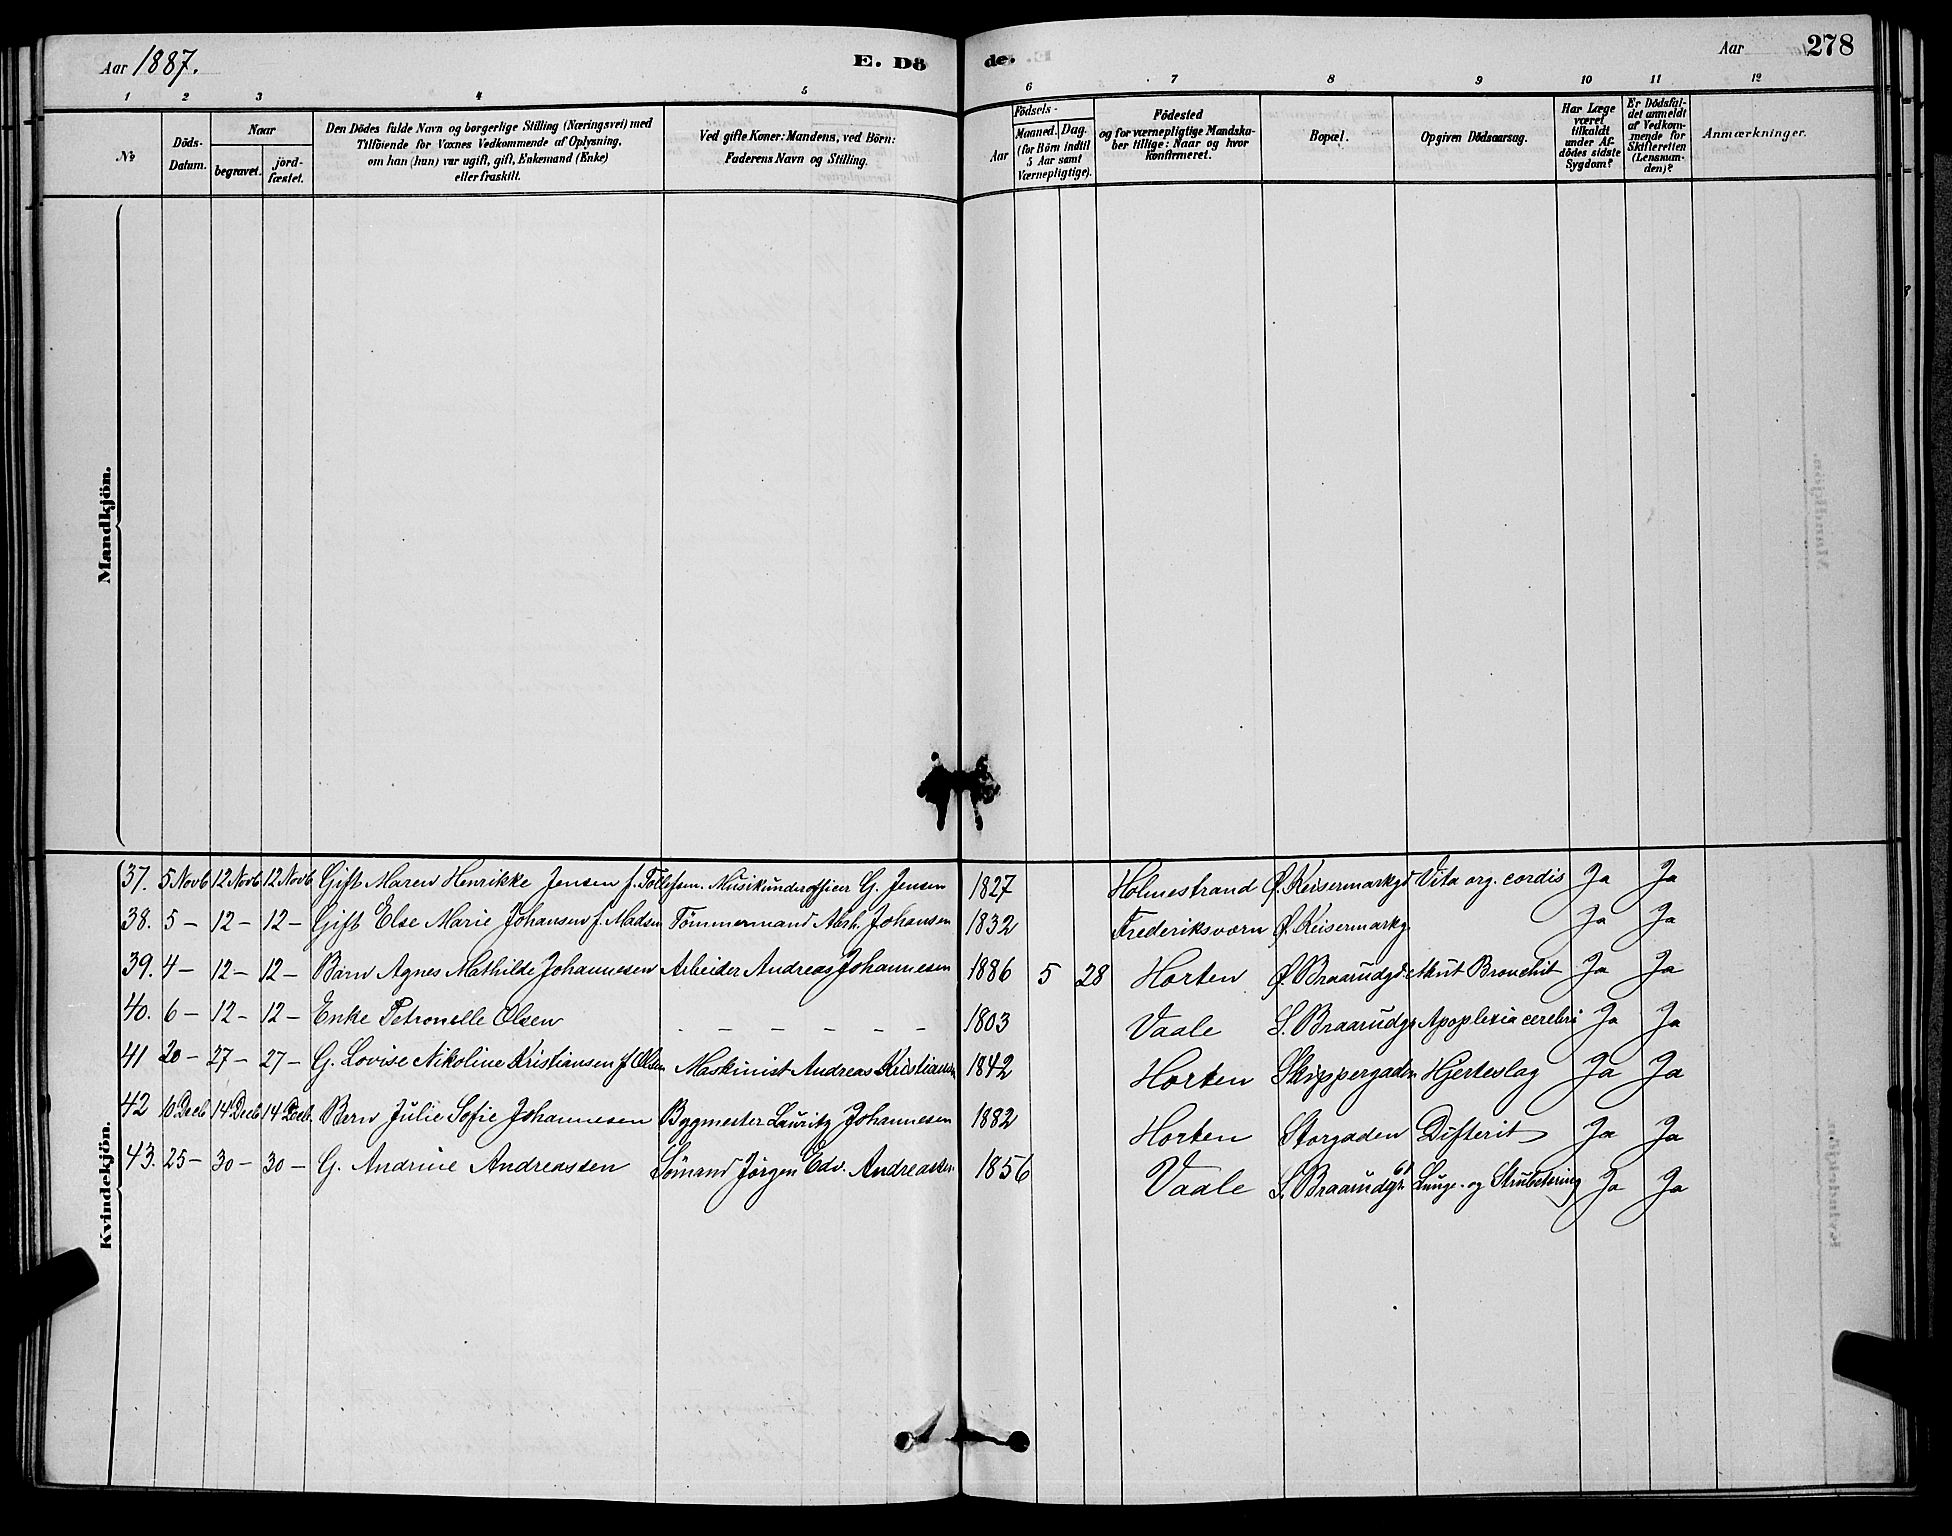 Aar 1887. E. Dö de. Aar 278
1 2 3 4 5 6 7 8 9 10 11 12
No
Döds-Datum.
Naar
begravet.
jord-fæstet.
Den Dödes fulde Navn og borgerlige Stilling (Næringsvei) med
Tilföiende for Voxnes Vedkommende af Oplysning,
om han (hun) var ugift, gift, Enkemand (Enke)
eller fraskilt.
Ved gifte Koner: Mandens, ved Börn:
Faderens Navn og Stilling.
Födsels-
Aar
Maaned. Dag.
(for Börn indtil
5 Aar samt
Værnepligtige).
Födested
og for værnepligtige Mandska-
ber tillige: Naar og hvor
Konfirmeret.
Bopæl.
Opgiven Dödsaarsag.
Har Læge
været
tilkaldt
under Af-
dödes sidste
Sygdom?
Er Dödsfal-
det anmeldt
af Vedkom-
mende for
Skifteretten
(Lensman-
den)?
Anmærkninger.
Mandkjön.
Kvindekjön.
37. 5 Novb 12 Novb 12 Novb Gift Maren Henrikke Jensen f. Tollefsen. Musikunderofficer G. Jensen 1827 Holmestrand Ø. Keisermarkgd Vita org. cordis Ja Ja
38. 5 – 12 – 12 – Gift Else Marie Johansen f. Madsen Tömmermand Johansen 1832 Frederiksværn Ø. Keisermarkg. Ja Ja
39. 4 – 12 – 12 – Barn Agnes Mathilde Johannesen Arbeider Andreas Johannesen 1886 5 28 Horten Ø. Braarudgd. Akut Bronchit Ja Ja
40. 6 – 12 – 12 – Enke Petronelle Olsen – – – – – – 1803 Vaale S. Braarudgd Apoplexia cerebri Ja Ja
41 20 – 27 – 27 – G. Lovise Nikoline Kristiansen f Olsen Maskinist Andreas Kristiansen 1842 Horten Skippergaden Hjerteslag Ja Ja
42 10 Decb 14 Decb 14 Decb. Barn Julie Sofie Johannesen Bygmester Lauritz Johannesen 1882 Horten Storgaden Difterit Ja Ja
43. 25 – 30 – 30 – G. Andrine Andreassen Sömand Jørgen Edv. Andreassen 1856 Vaale S. Braarudgd. 61 Lunge- og Strubetæring Ja Ja